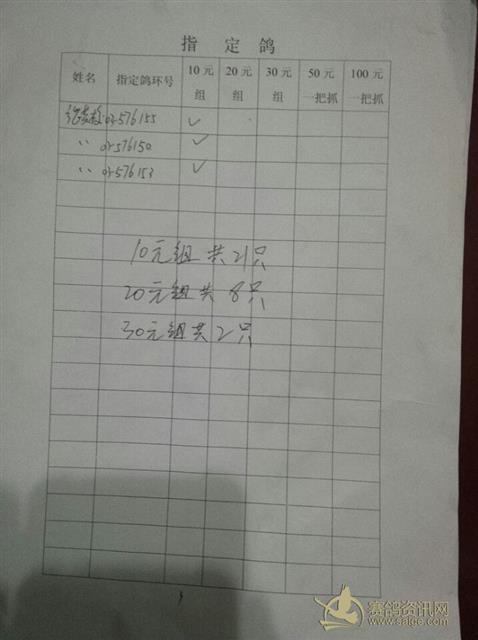 指定鸽
姓名 指定鸽环号 10元组 20元组 30元组 50元一把抓 100元一把抓
02-576155 ✓
〃 02-576150 ✓
〃 02-576153 ✓
10元组共21只
20元组共8只
30元组共2只
赛鸽资讯网
www.saige.com